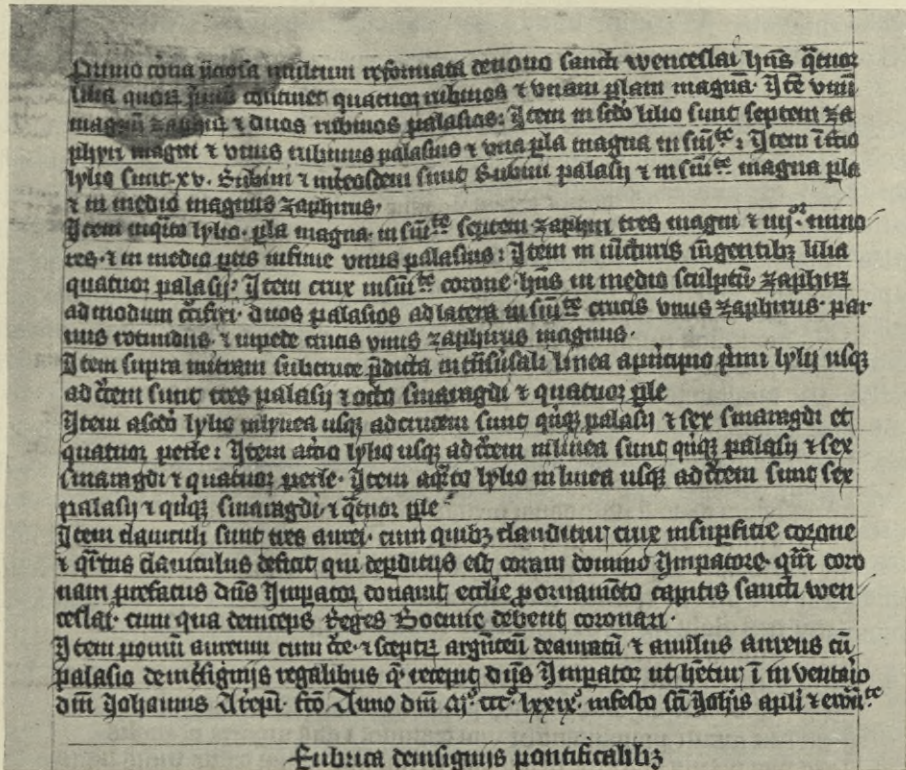 Primo corona preciosa multum reformata de nouo sancti wenceslai hn̄s qͣtuor
lilia quorꝝ primū continet quatuor rubinos ⁊ vnam perlam magnā· Itē vnū
magnū zaphirū ⁊ duos rubinos palasios: Item in scd̄o lilio sunt septem za
phyri magni ⁊ vnus rubinus palasius ⁊ vna perla magna in sūm̄te: Item ī tercio
lylio sunt·xv· Rubini ⁊ inter eosdem sunt Rubini palasij ⁊ in sūm̄te magna perla
⁊ in medio magnus zaphirus·
Item in quarto lylio· perla magna· in sūm̄te septem zaphiri tres magni ⁊ iiijor· mino
res· ⁊ in medio vnus palasius: Item in lilia
quatuor palasij· Item crux in sūm̄te corone· hn̄s in medio sculptū zaphirū
ad modum crucifixi· duos palasios ad latera in sūm̄te crucis vnus zaphirus· par
uus rotundus· ⁊ in pede crucis vnus zaphirus magnus·
Item supra mitram sub cruce p̄dicta in linea a principio primi lylij usqꝫ
ad crucem sunt tres palasij ⁊ octo smaragdi ⁊ quatuor perle
Item a scd̄o lylio in lynea usqꝫ ad crucem sunt quīqꝫ palasij ⁊ sex smaragdi et
quatuor perle: Item a tercio lylio usqꝫ ad crucem in linea sunt quīqꝫ palasij ⁊ sex
smaragdi ⁊ quatuor perle· Item a quarto lylio in linea usqꝫ ad crucem sunt sex
palasij ⁊ quīqꝫ smaragdi· ⁊ qͣtuor perle
Item clauiculi sunt tres aurei· cum quibꝫ clauditur crux in superficie corone
⁊ quartus clauiculus deficit qui deperditus est coram domino Imperatore· quam coro
nam prefatus dn̄s Imperator donauit ecclesie pro ornamento capitis sancti wen
ceslai· cum qua deinceps Reges Boemie debent coronari·
Item pomū aureum cum cruce· ⁊ sceptrū argenteū deauratū ⁊ anulus aureus cū
palasio de insignijs regalibus que recepit dn̄s Imperator ut habetur ī inuentario
dn̄i Johannis Archiepī· fcō Anno dn̄i Mo· ccco· lxxixo· in festo scī Johīs apl̄i ⁊ ewante
Rubrica de insignijs pontificalibꝫ